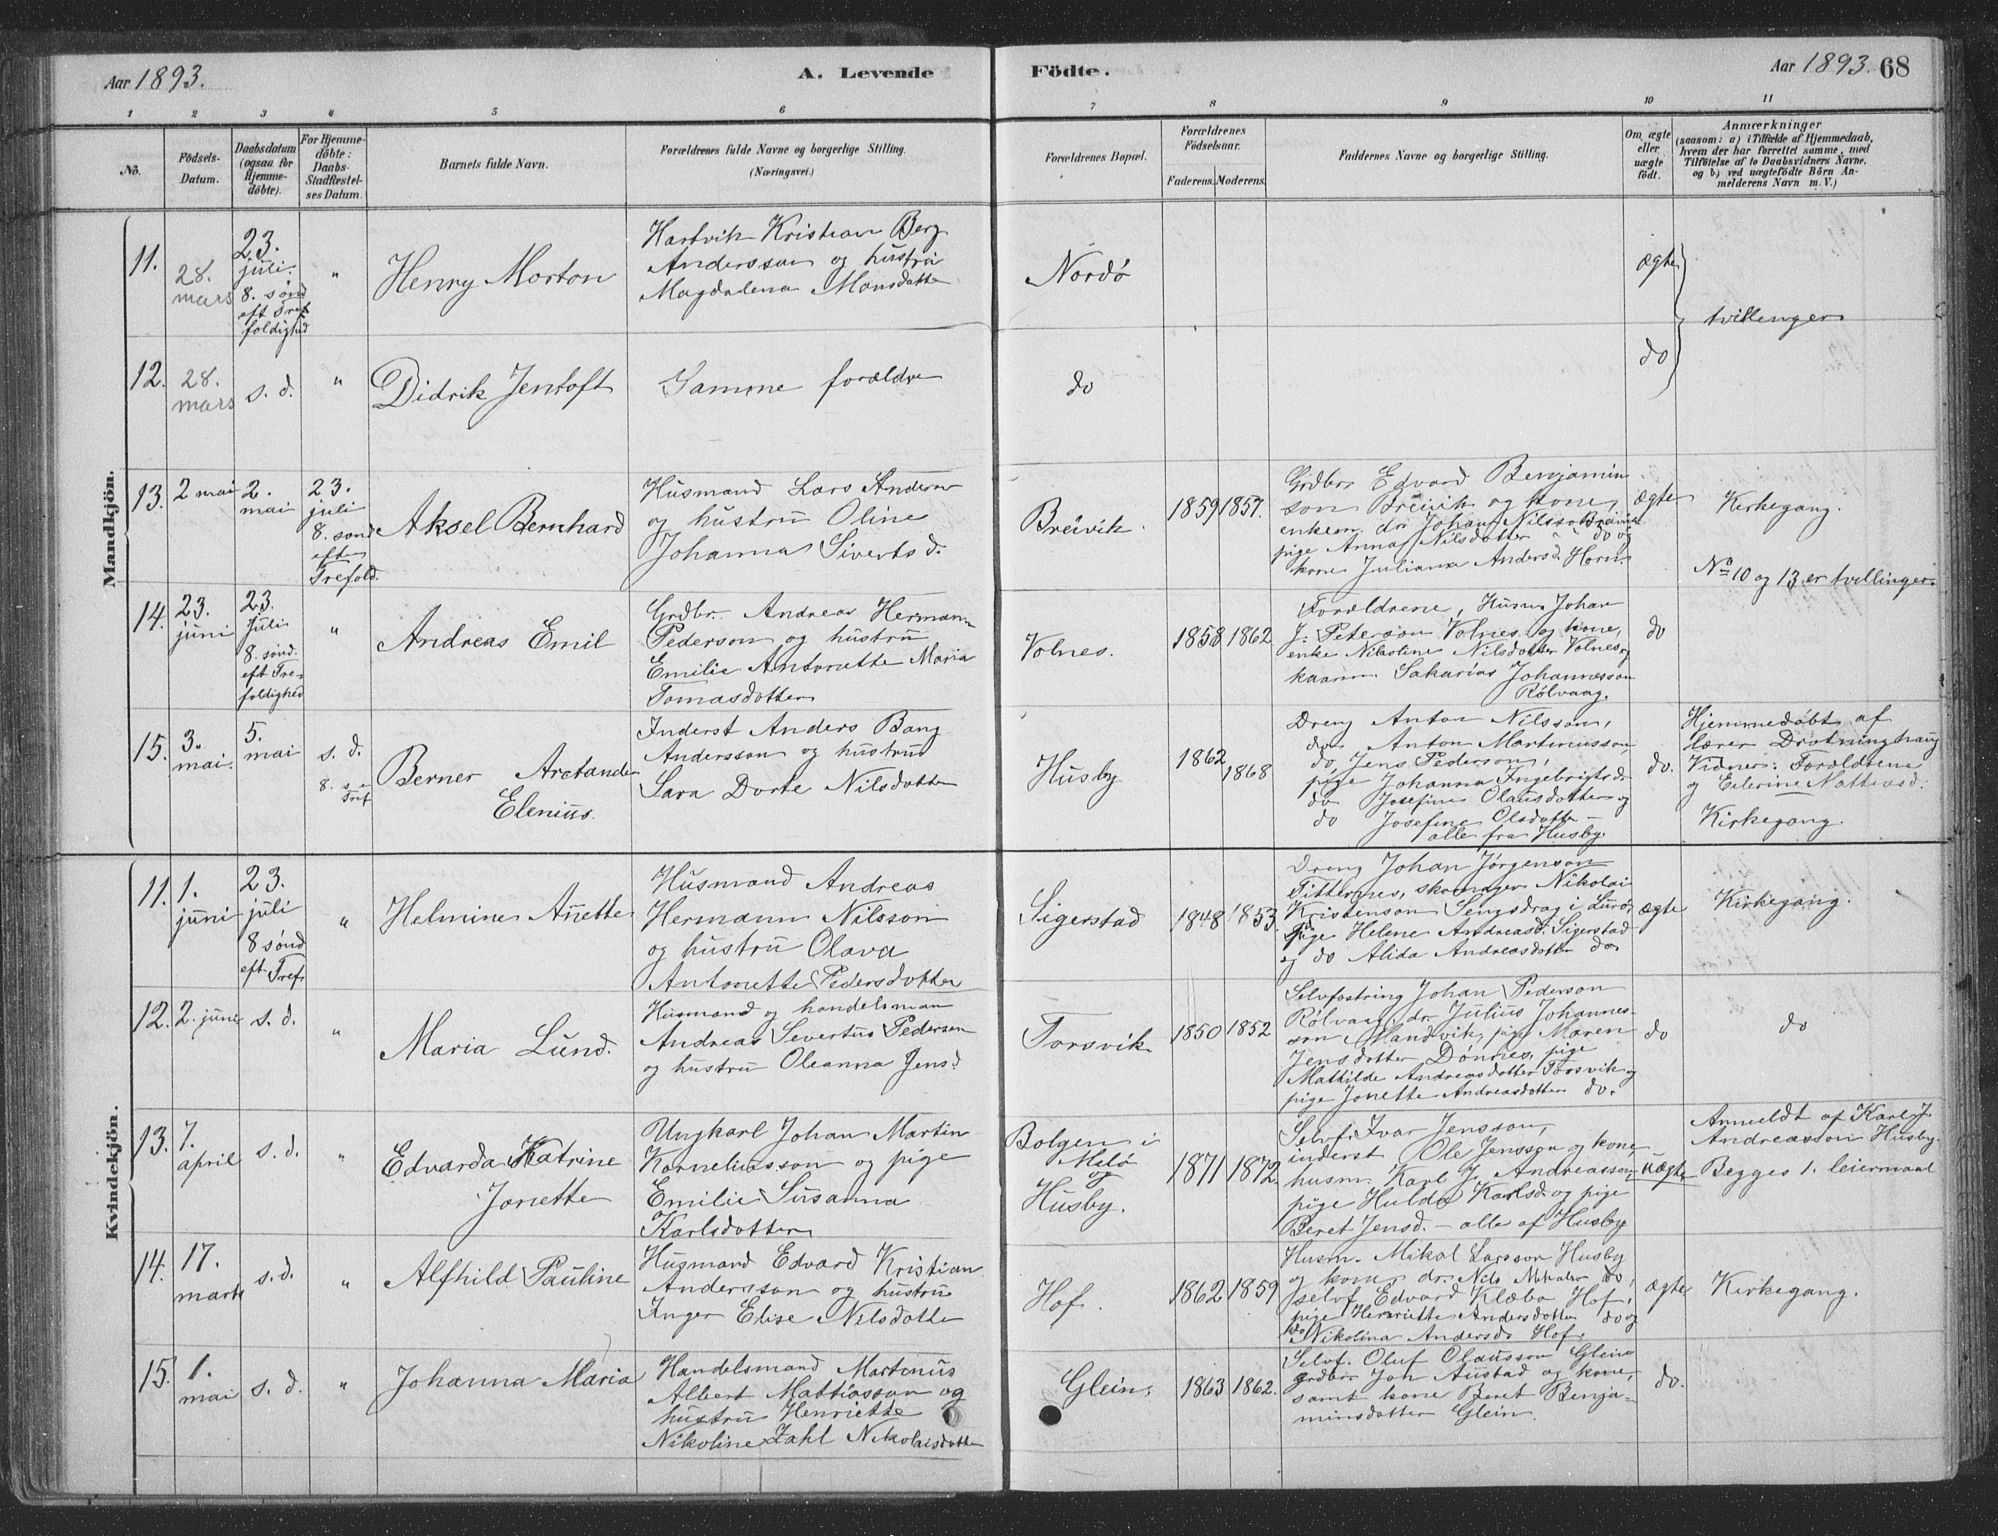 Aar 1893.
A. Levende Födte.
Aar 1893. 68
1 2 3 4 5 6 7 8 9 10 11
No.
Födsels-
Datum.
Daabsdatum
(ogsaa for
Hjemme-
döbte).
For Hjemme-
döbte:
Daabs-
Stadfæstel-
ses Datum.
Barnets fulde Navn.
Forældrenes fulde Navne og borgerlige Stilling.
(Næringsvei.)
Forældrenes Bopæl.
Forældrenes
Födselsaar.
Faderens. Moderens.
Faddernes Navne og borgerlige Stilling.
Om ægte
eller
uægte
födt.
Anmærkninger
(saasom: a) i Tilfælde af Hjemmedaab,
hvem der har forrettet samme, med
Tilföielse af to Daabsvidners Navne.
og b) ved uægtefödte Börn An-
melderens Navn m. V.)
Mandkjön.
11.
28.
mars
23.
juli.
8. sønd
eft Tref
foldighed
"
Henry Morton
Hartvik Kristian Berg
Andersson og hustru
Magdalena Monsdatte
Nordø
ægte
tvillenger
12.
28.
mars
s. d.
"
Didrik Jentoft
Samme forældre
do
do
13.
2 mai
2.
mai
23.
juli
8. sønd
eft
Trefold.
Aksel Bernhard
Husmand Lars Anderss
og hustru Oline
Johanna Siverts d.
Breivik.
1859 1857.
Grdbr Edvard Benjamin
son Breivik og kone,
enkem. dr Johan Nilsson Breivik
pige Anna Nilsdotter do og
kone Juliana Anders d. Horn.
ægte
Kirkegang.
No 10 og 13 er tvillinger.
14.
23.
juni
23.
Juli
8. sønd.
eft Tre-
foldighed
"
Andreas Emil
Grdbr. Andreas Hermann
Pederson og hustru
Emilie Antonette Maria
Tomasdotter
Volnes.
1858 1862
Forældrene, Husm Johan
J. Peterson Volnes og kone,
enke Nikoline Nilsdotter Volnes og
kaarm Sakarias Johannesson
Rølvaag.
do
15.
3.
mai.
5.
mai
s. d.
8. s e
Tref
Berner Arctander
Elenius.
Inderst Anders Bang
Andersson og hustru
Sara Dorte Nilsdotter
Husby
1862
1868
Dreng Anton Nilsson,
do Anton Martinusson
do Jens Pederson,
pige Johanna Ingebrigts d.
do Josefine Olausdotter og
do Josefine Olsdotter –
alle fra Husby.
do.
Hjemmedøbt af
lærer Drotninghaug
Vidner: Forældrene
og Eilerine Mattiasd.
Kirkegang.
Kvindekjön.
11.
1.
juni
23.
juli
8 sønd
eft Tref
"
Helmine Anette
Husmand Andreas
Hermann Nilsson
og hustru Olava
Antonette Pedersdotter
Sigerstad
1848 1853.
Dreng Johan Jørgenson
Titternes, skomager Nikolai
Kristenson Sengsdrag i Lurø,
pige Helene Andreasd. Sigerstad
og do Alida Andreasdotter do
ægte
Kirkegang.
12.
2. june
s. d.
"
Maria Lund.
Husmand og handelsman
Andreas Severtus Pedersen
og hustru Oleanna Jensd
Forsvik
1850 1852
Selvfostring Johan Pederson
Rølvaag, dr. Julius Johannes-
son Sandvik, pige Maren
Jensdotter Dønnes, pige
Mathilde Andreasdotter Forsvik og
pige Jonette Andreasdotter do.
do
do
13.
7.
april
s. d.
"
Edvarda Katrine
Jonette
Ungkarl Johan Martin
Korneliusson og pige
Emilie Susanna
Karlsdotter
Bolgen i
Melø
og
Husby.
1871 1872.
Selvf. Ivar Jensson,
inderst Ole Jensson og kone,
husm. Karl J. Andreasson,
pige Hulda Karlsd. og pige
Beret Jensd. – alle af Husby
uægte
Anmeldt af Karl J.
Andreasson Husby.
Begges 1. leiermaal
14.
17.
marts
s. d.
"
Alfhild Pauline
Husmand Edvard Kristian
Andersson og hustru
Inger Elise Nilsdotter
Hof.
1862 1859
Husm. Mikal Larsson Husby
og kone, dr. Nils Mikalss do,
selvf Edvard Klæbo Hof,
pige Henriette Andersdotter do og
do Nikolina Andersd Hof.
ægte
Kirkegang.
15.
1.
mai
s. d.
"
Johanna Maria
Handelsmand Martinus
Albert Mattiasson og
hustru Henriette
Nikoline Zahl Nikolaisdotter
Glein.
1863 1862.
Selvf. Oluf Olausson Glein
grdbr Jon Austad og kone,
samt kone Beret Benja-
minsdotter Glein.
do.